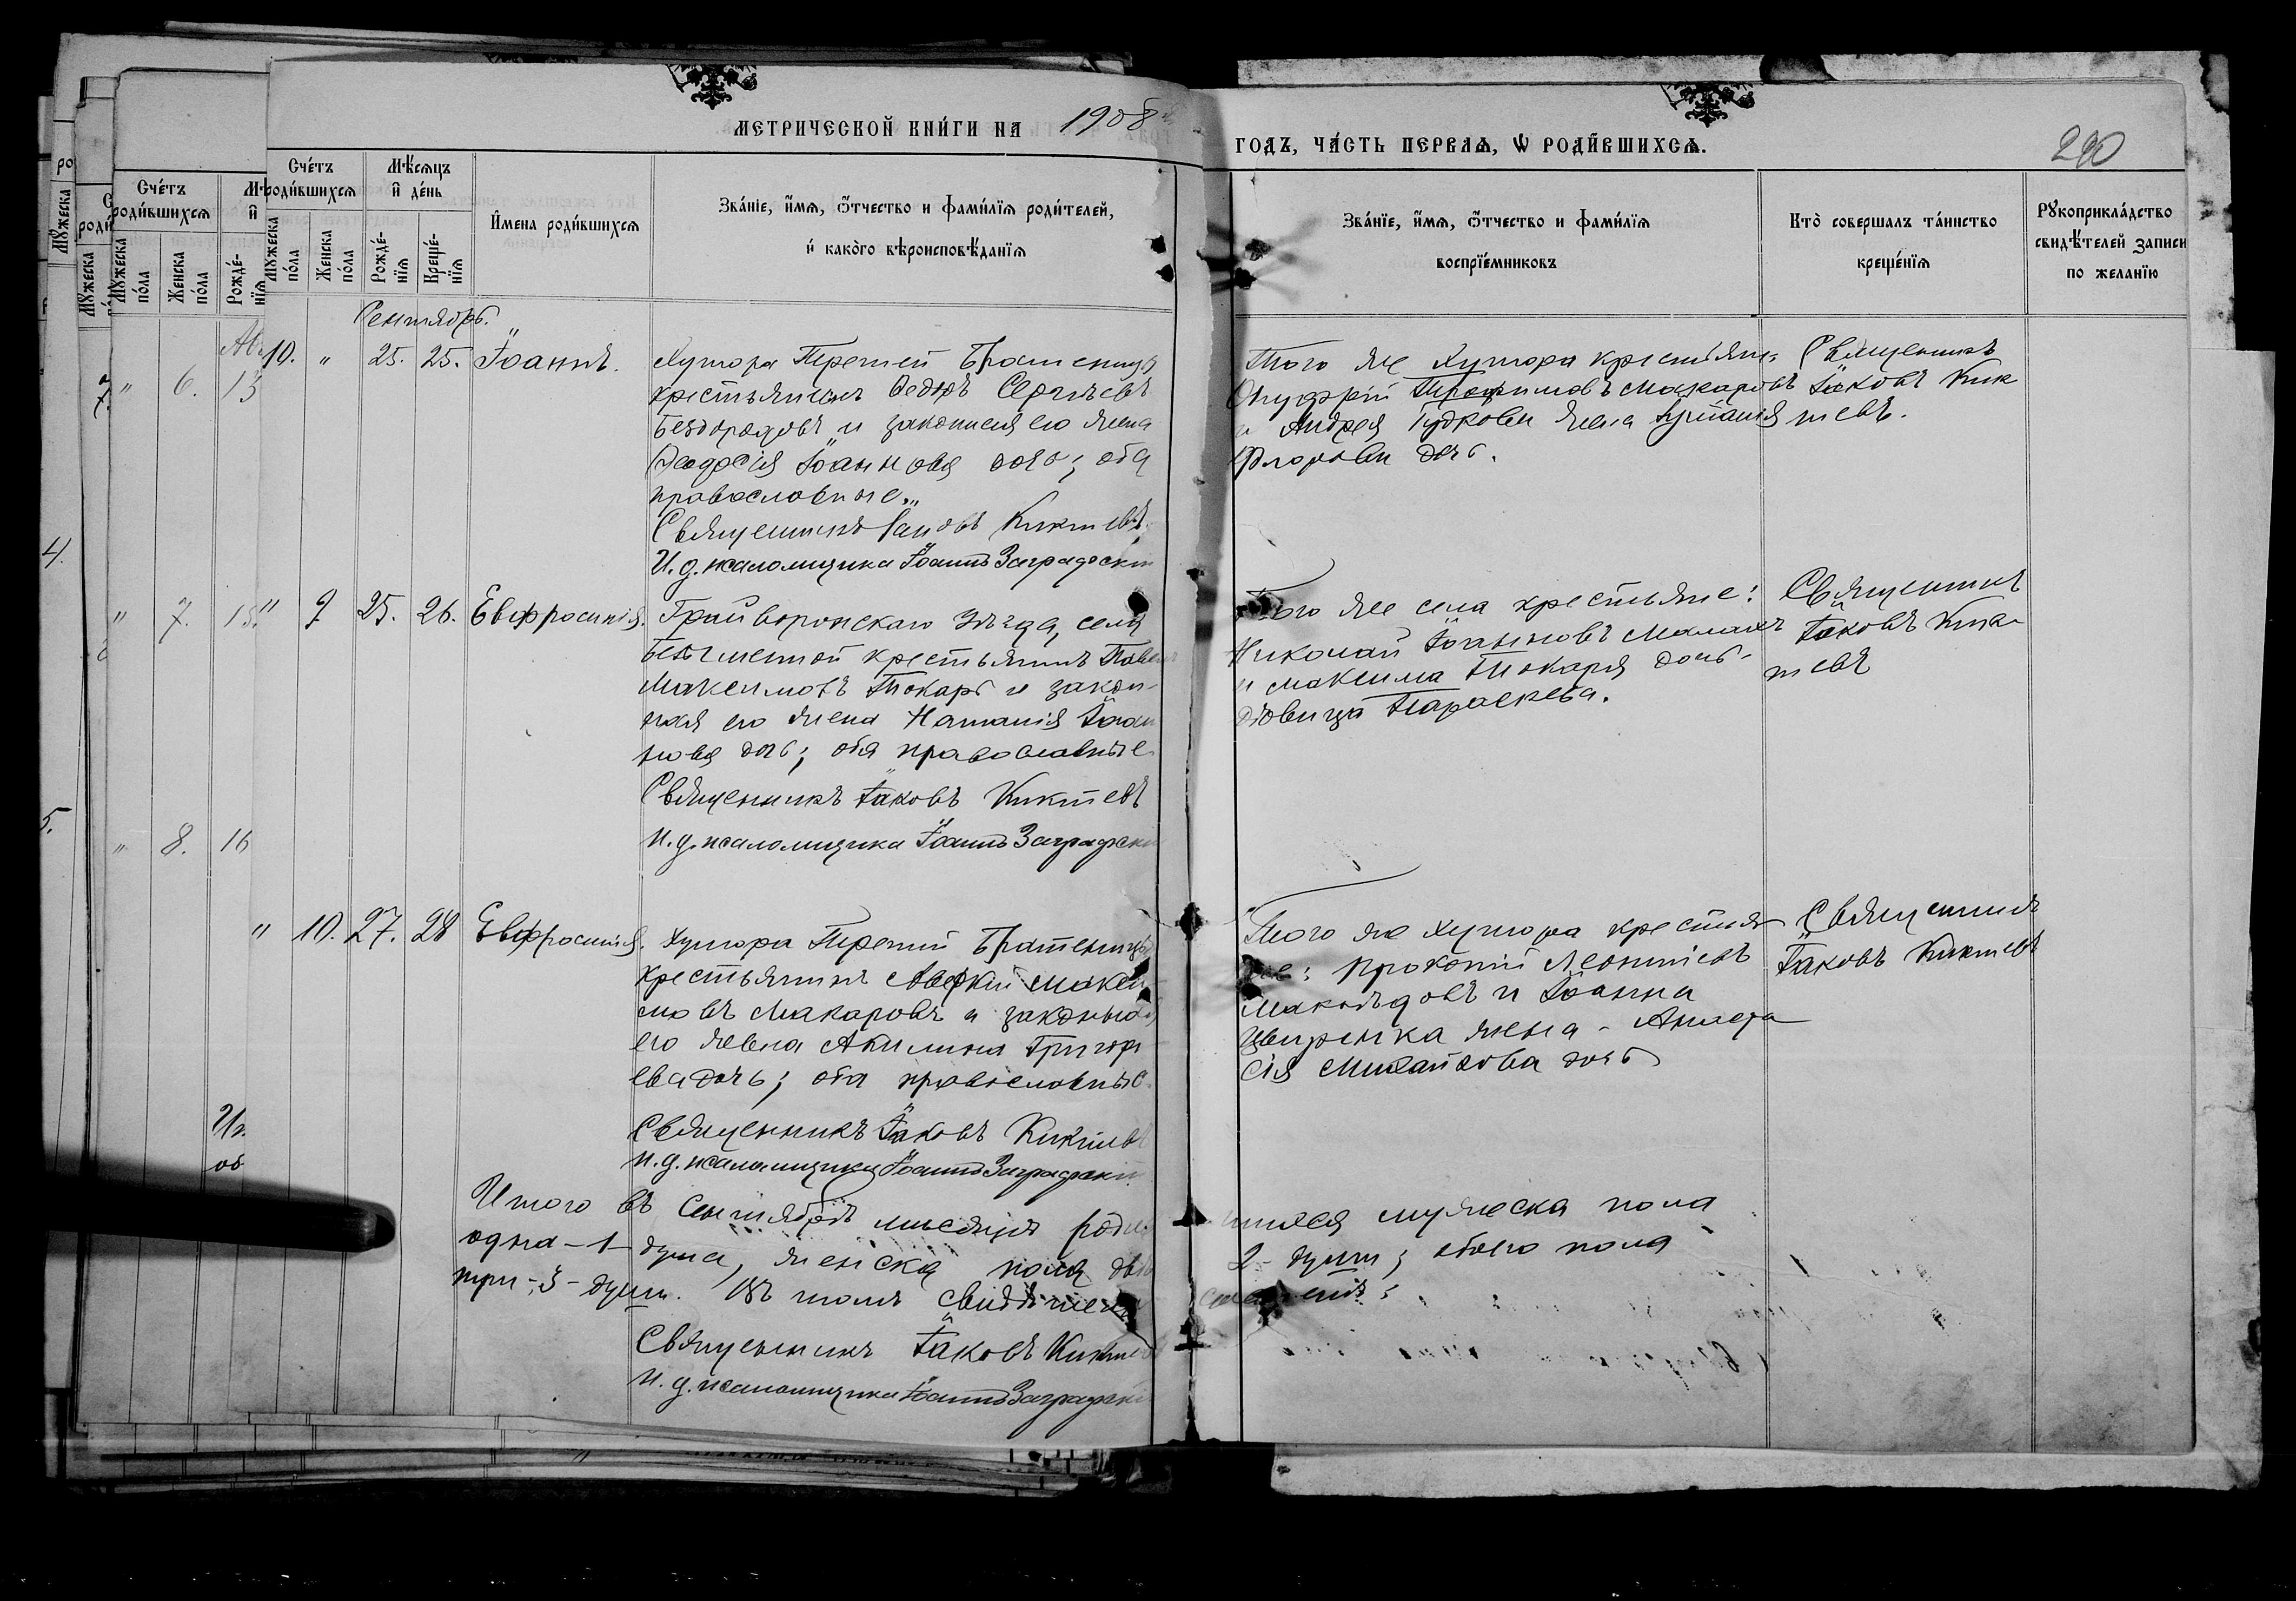 МЕТРИЧЕСКОЙ КНИ́ГИ НА 1908
ГОДЪ, ЧА́СТЬ ПЕРВАѦ, Ѡ РОДИ́ВШИХСѦ.
290
Сче́тъ роди́вшихсѧ
Мѣ́сѧцъ и҆ де́нь
Мꙋжеска по́ла
Женска по́ла
Рожде́-нїѧ
Креще́-нїѧ
И҆мена роди́вшихсѧ
Зва́нїе, и҆́мѧ, ѻ҆́тчество и фами́лїѧ роди́телей,
и҆ како́гѡ вѣроисповѣ́данїѧ
Зва́нїе, и҆́мѧ, ѻ҆́тчество и фами́лїѧ
воспрїе́мниковъ
Кто̀ совершалъ та́инство
креще́нїѧ
Рꙋкоприкла́дство
свидѣ́телей записи
по желанїю
Сентябрь.
10. " 25. 25. Іоаннъ.
Хутора Третей Братеницы
крестьянинъ Ѳедоръ Сергѣевъ
Безбородовъ и законная его жена
Ѳеодосія Іоаннова дочь; оба
православные.
Священникъ Іаковъ Киктевъ
И. д. псаломщика Іоаннъ Заградскій
Того же Хутора крестьяне
Онуфрій Трофимовъ Макаровъ
и Андрея Гудкова жена
дочь.
Священникъ
Іаковъ Кик
тевъ.
" 9 25. 26. Евфросинія.
Грайворонскаго Уѣзда, села
крестьянинъ Павелъ
Максимовъ Токарь и закон-
ная его жена Наталія Іоан
нова дочь; оба православные
Священникъ Іаковъ Киктевъ
И. д. псаломщика Іоаннъ Заградскій
Того же села крестьяне:
Николай Іоанновъ
и Максима Токаря дочь-
дѣвица Параскева.
Священникъ
Іаковъ Кик-
тевъ
" 10. 27. 28 Евфросинія.
Хутора Третей Братеницы
крестьянинъ Аверкій Макси
мовъ Макаровъ и законная
его жена Акилина Григорь
ева дочь; оба православные
Священникъ Іаковъ Киктевъ
И. д. псаломщика Іоаннъ Заградскій
Того же хутора крестья
не: Прокопій Леонтіевъ
Макоѣдовъ и Іоанна
Цвиренка жена - Анаста
сія Михайлова дочь
Священникъ
Іаковъ Киктевъ
Итого въ Сентябрѣ мѣсяцѣ родив шихся мужеска пола
одна - 1 - душа, женска пола двѣ 2 - души; обоего пола
три - 3 - души. Въ томъ свидѣтель
Священникъ Іаковъ Киктевъ
И. д. псаломщика Іоаннъ Заградскій